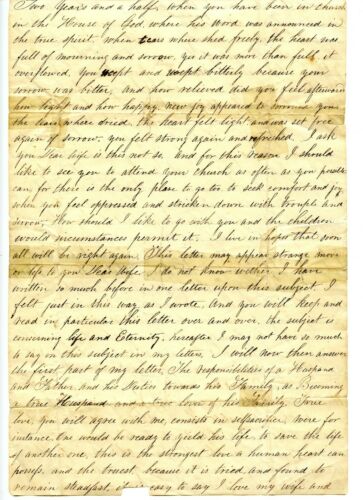 Two Years and a half, when you have been in church
in the House of God where his Word was announced in
the true spirit, when tears where shed freely, the heart was
full of mourning and sorrow, yes it was more than full, it
overflowed. You wept and wept bitterly because your
sorrow was bitter, and how relieved did you feel afterwards
how light and how happy. new joy appeared to surround you
the tears where dried, the heart felt light and was set free
again of sorrow. you felt strong again and refreshed. I ask
you Dear Wife is this not so. and for this reason I should
like to see you to attend your church as often as you possible
can, for there is the only place to go too to seek comfort and joy
when you feel oppressed and stricken down with trouple and
sorrow. How should I like to go with you and the children
would circumstances permit it. I live in hopes that soon
all will be right again. This letter may appear strange more
or less to you Dear Wife. I do not know wether I have
written so much before in one letter upon this subject. I
felt just in this way as I wrote, and you will keep and
read in particular this letter over and over, the subject is
concerning life and Eternity, hereafter I may not have so much
to say on this subject in my letters. I will now then answer
the first part of my letter. The responsibilities of a Husband
and Father, and his Duties towards his Family, as Becoming
a true Husband and a true love of his Family. True
love, you will agree with me, consists in selfsacrifice, were for
instance. One would be ready to yield his life to save the life
of another one, this is the strongest love a human heart can
possess, and the truest, because it is tried, and found to
remain steadfast, it is easy to say I love my wife and